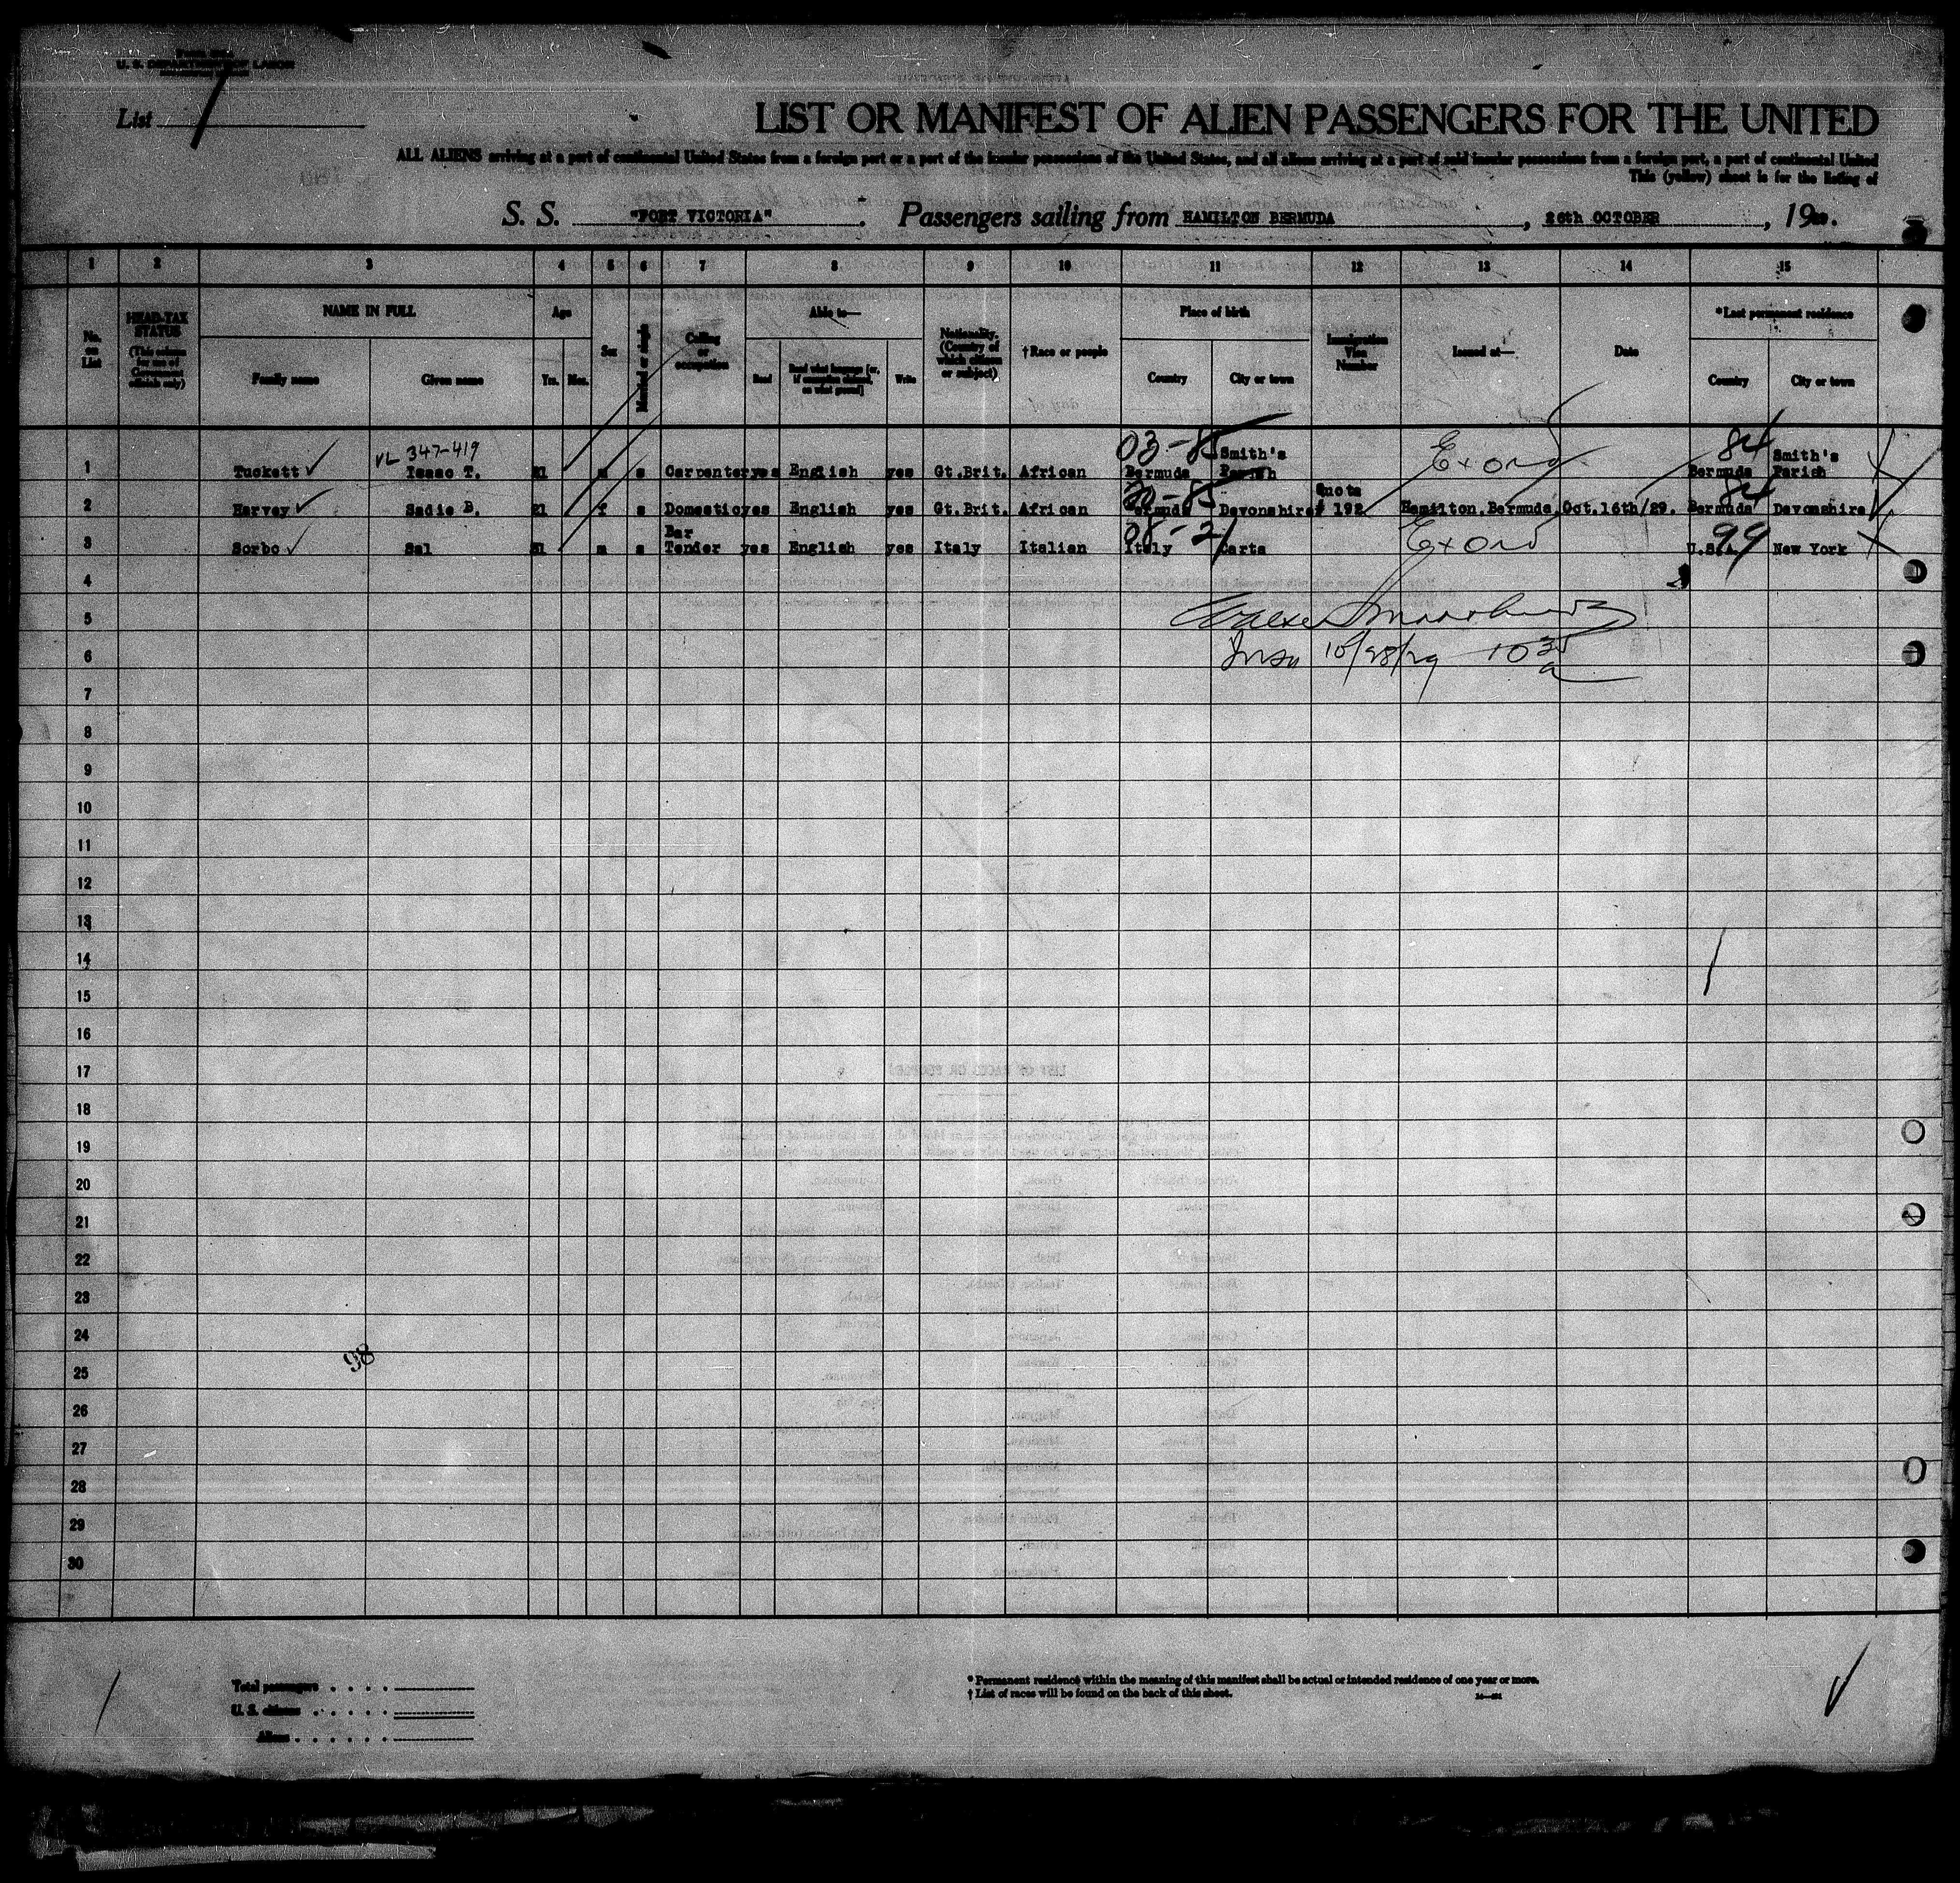 U. S. DEPARTMENT OF LABOR
List
LIST OR MANIFEST OF ALIEN PASSENGERS FOR THE UNITED
ALL ALIENS arriving at a port of continental United States from a foreign port or a port of the insular possessions of the United States, and all aliens arriving at a port of said insular possessions from a foreign port, a port of continental United
This (yellow) sheet is for the listing of
S. S. "FORT VICTORIA". Passengers sailing from HAMILTON BERMUDA, 26th OCTOBER, 19
1 2 3 4 5 6 7 8 9 10 11 12 13 14 15
No. on List
HEAD-TAX STATUS (This column for use of Government officials only)
NAME IN FULL
Family name
Given name
Age
Yrs. Mos.
Sex
Married or single
Calling or occupation
Able to—
Read
Read what language [or, if exemption claimed, on what ground]
Write
Nationality. (Country of which citizen or subject)
†Race or people
Place of birth
Country
City or town
Immigration Visa Number
Issued at—
Date
*Last permanent residence
Country
City or town
VL 347-419 03-85 Smith's 84 Smith's
1 Tuckett Isaac T. m s Carpenter yes English yes Gt.Brit. African Bermuda Parish Bermuda Parish
Quota 84
2 Harvey Sadie B. 21 f s Domestic yes English yes Gt.Brit. African Bermuda Devonshire # 192 Hamilton, Bermuda, Oct. 16th/29. Bermuda Devonshire
Bar 08-21 99
3 Sorbo Sal m s Tender yes English yes Italy Italian Italy U.S.A. New York
4
5
6 10/28/29 10
7
8
9
10
11
12
13
14
15
16
17
18
19
20
21
22
23
24
98
25
26
27
28
29
30
Total passengers
U. S. citizens
Aliens
* Permanent residence within the meaning of this manifest shall be actual or intended residence of one year or more.
† List of races will be found on the back of this sheet.